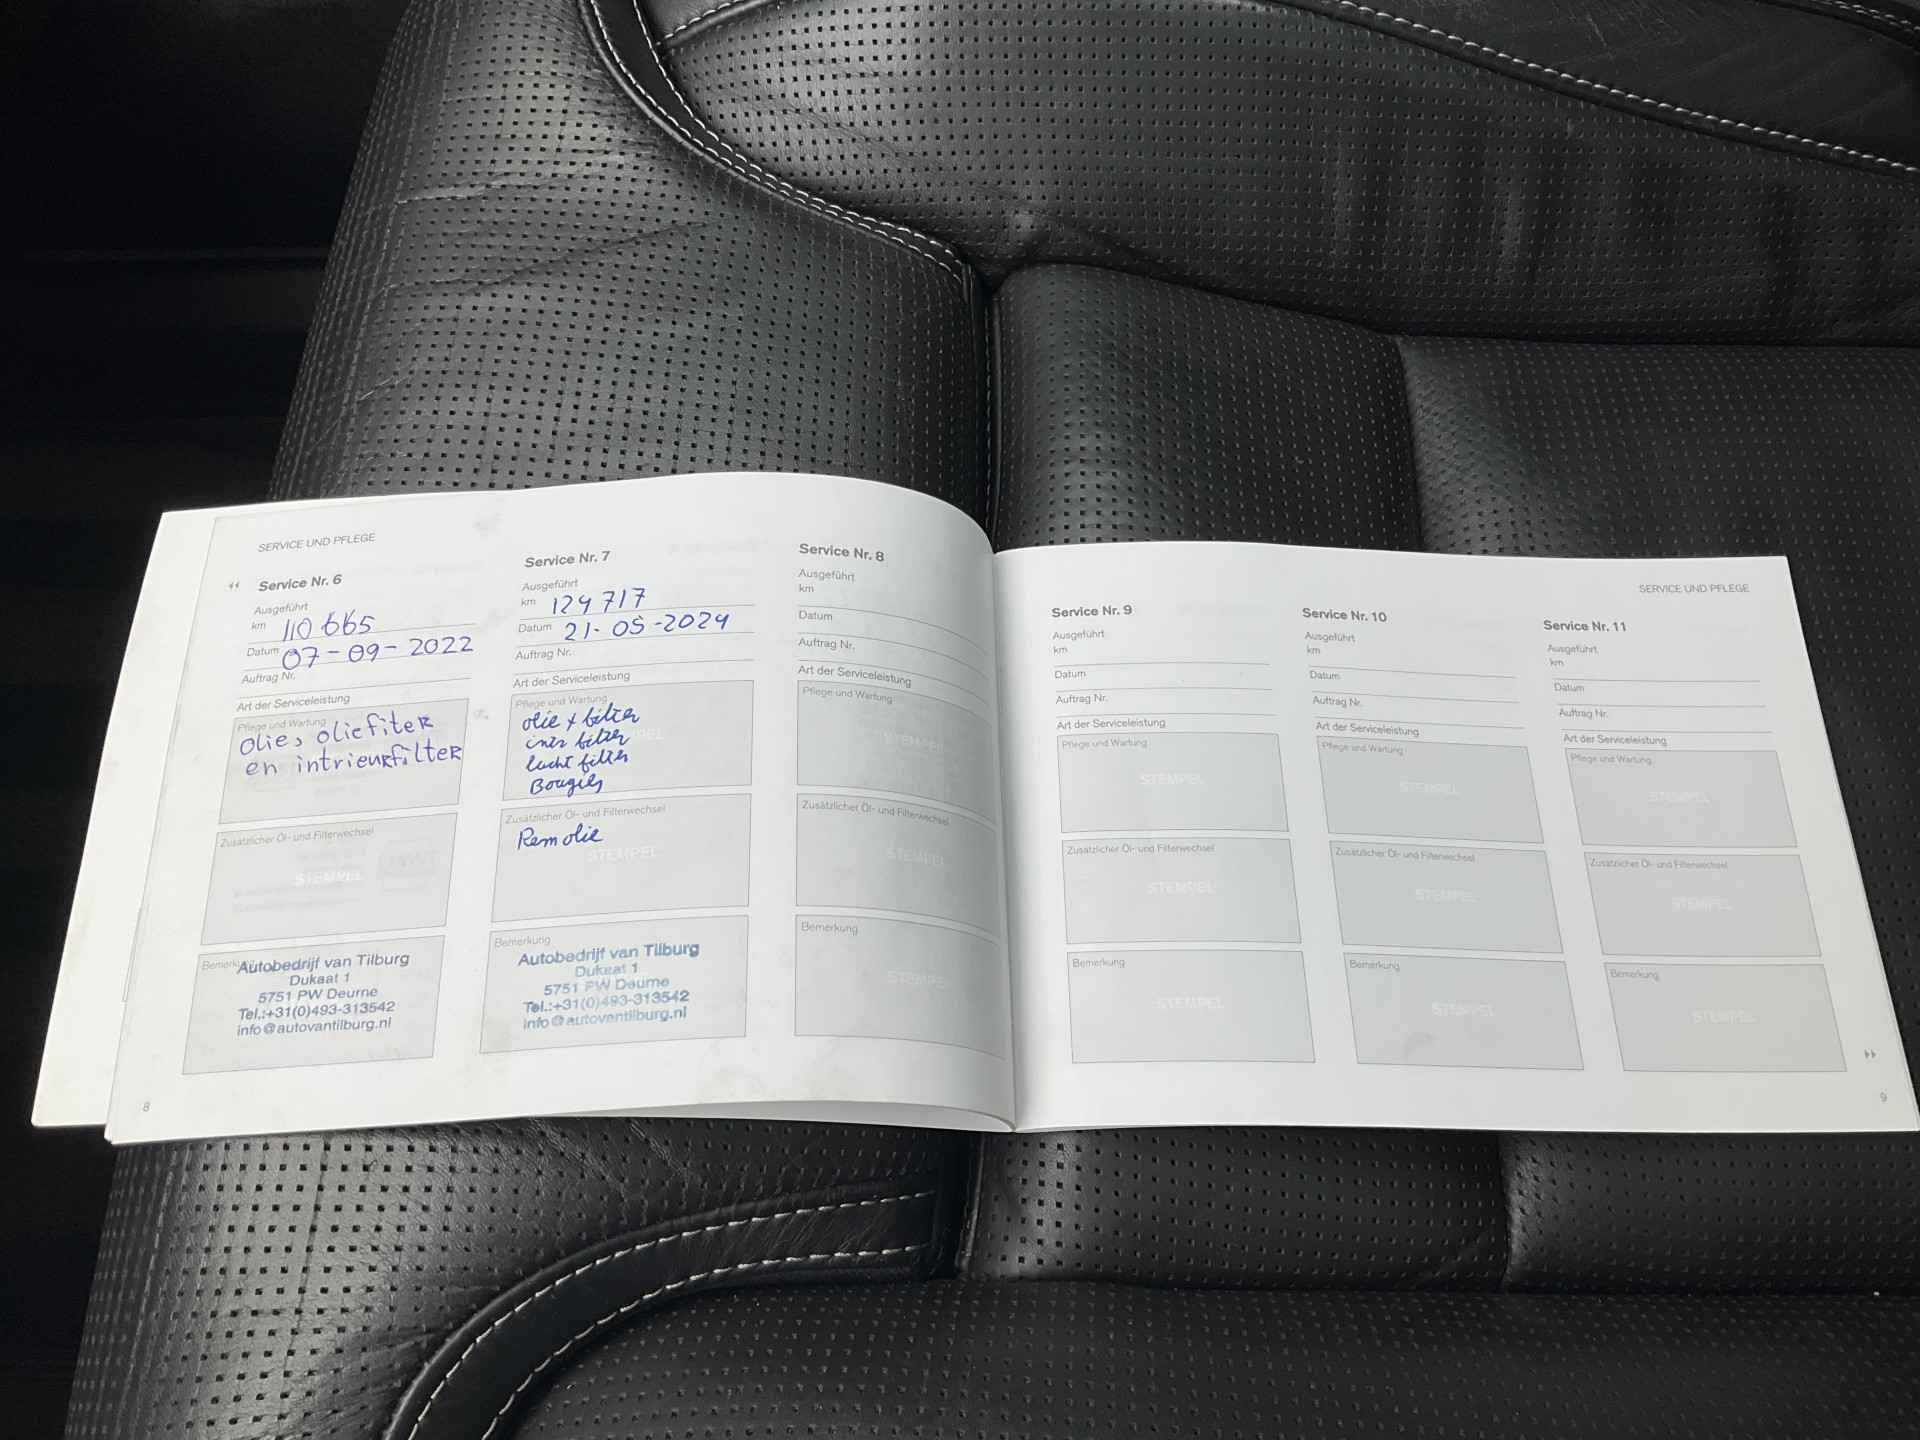 SERVICE UND PFLEGE
Service Nr. 6
Ausgeführt
km 110 665
Datum 07-09-2022
Auftrag Nr.
Art der Serviceleistung
Pflege und Wartung
Olie, oliefilter
en intrieurfilter
Zusätzlicher Öl- und Filterwechsel
STEMPEL
Bemerkung
Autobedrijf van Tilburg
Dukaat 1
5751 PW Deurne
Tel.:+31(0)493-313542
info@autovantilburg.nl
8
Service Nr. 7
Ausgeführt
km 124717
Datum 21-05-2024
Auftrag Nr.
Art der Serviceleistung
Pflege und Wartung
olie + filter
inter filter
lucht filter
Bougies
Zusätzlicher Öl- und Filterwechsel
Remolie
STEMPEL
Bemerkung
Autobedrijf van Tilburg
Dukaat 1
5751 PW Deurne
Tel.:+31(0)493-313542
info@autovantilburg.nl
Service Nr. 8
Ausgeführt
km
Datum
Auftrag Nr.
Art der Serviceleistung
Pflege und Wartung
STEMPEL
Zusätzlicher Öl- und Filterwechsel
STEMPEL
Bemerkung
STEMPEL
SERVICE UND PFLEGE
Service Nr. 9
Ausgeführt
km
Datum
Auftrag Nr.
Art der Serviceleistung
Pflege und Wartung
STEMPEL
Zusätzlicher Öl- und Filterwechsel
STEMPEL
Bemerkung
STEMPEL
Service Nr. 10
Ausgeführt
km
Datum
Auftrag Nr.
Art der Serviceleistung
Pflege und Wartung
STEMPEL
Zusätzlicher Öl- und Filterwechsel
STEMPEL
Bemerkung
STEMPEL
Service Nr. 11
Ausgeführt
km
Datum
Auftrag Nr.
Art der Serviceleistung
Pflege und Wartung
STEMPEL
Zusätzlicher Öl- und Filterwechsel
STEMPEL
Bemerkung
STEMPEL
9